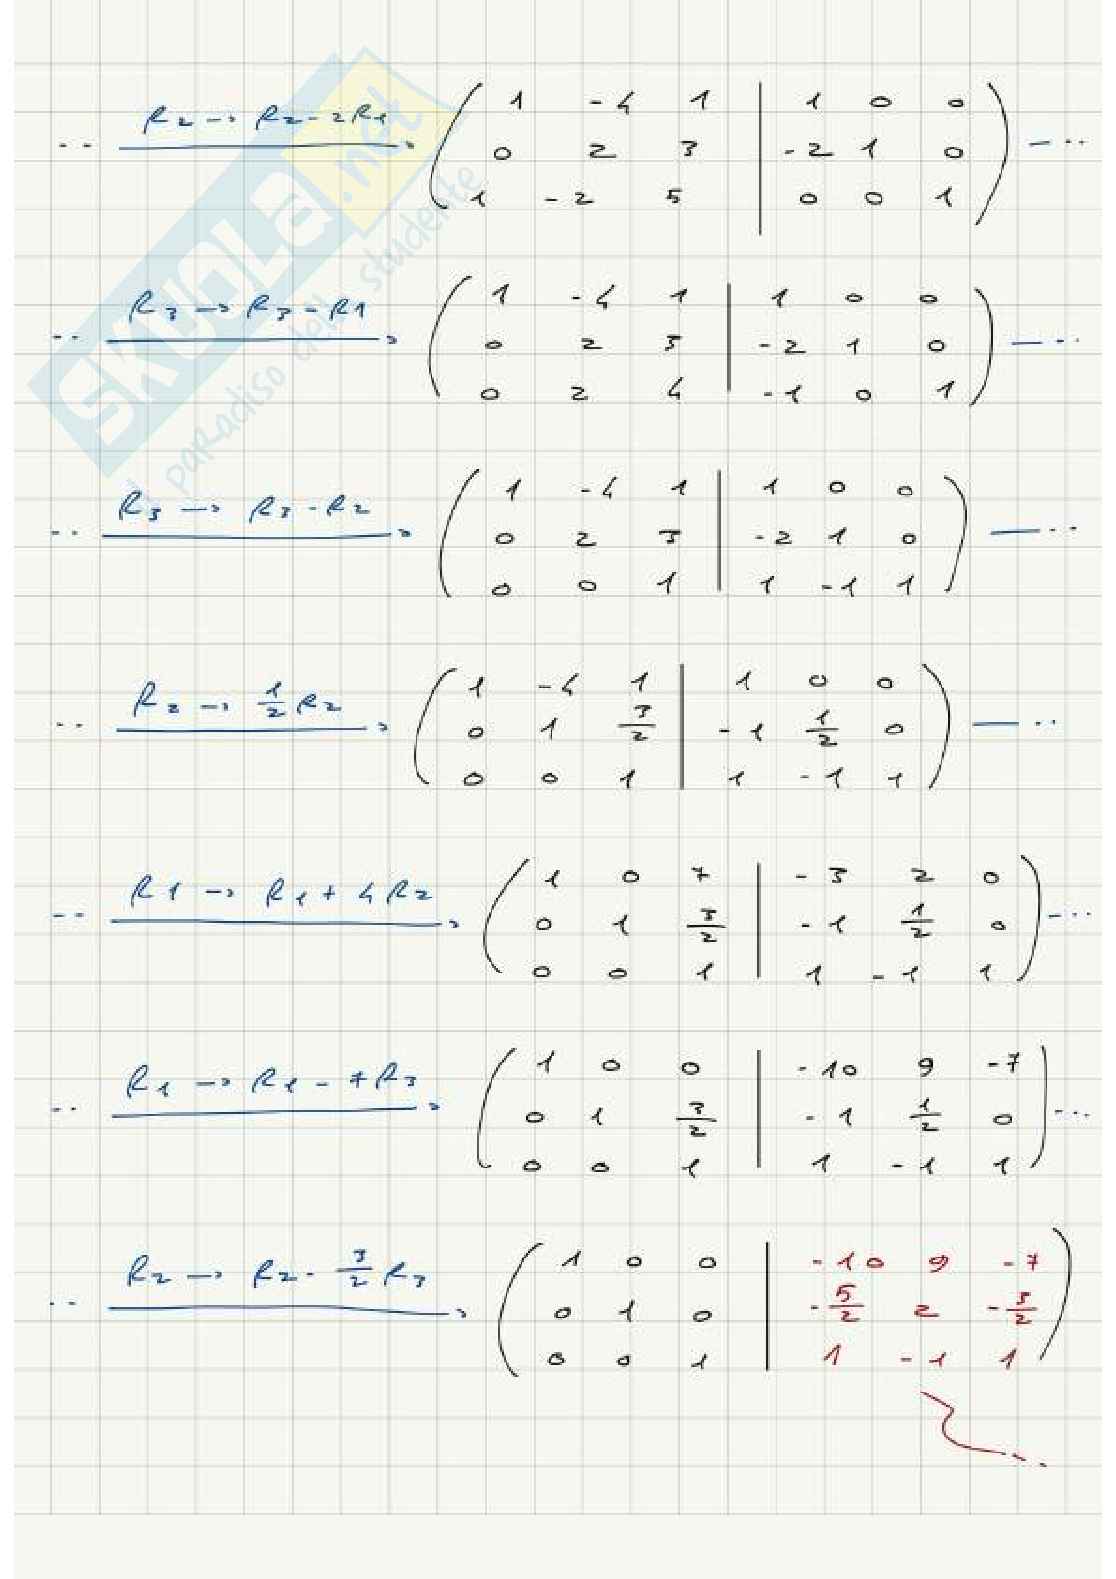 -- R2 → R2 - 2R1 → ( 1 -4 1 | 1 0 0 )
( 0 2 3 | -2 1 0 ) — ··
( 1 -2 5 | 0 0 1 )
-- R3 → R3 - R1 → ( 1 -4 1 | 1 0 0 )
( 0 2 3 | -2 1 0 ) — ··
( 0 2 4 | -1 0 1 )
-- R3 → R3 - R2 → ( 1 -4 1 | 1 0 0 )
( 0 2 3 | -2 1 0 ) — ··
( 0 0 1 | 1 -1 1 )
-- R2 → 1/2 R2 → ( 1 -4 1 | 1 0 0 )
( 0 1 3/2 | -1 1/2 0 ) — ··
( 0 0 1 | 1 -1 1 )
-- R1 → R1 + 4R2 → ( 1 0 7 | -3 2 0 )
( 0 1 3/2 | -1 1/2 0 ) - ··
( 0 0 1 | 1 -1 1 )
-- R1 → R1 - 7R3 → ( 1 0 0 | -10 9 -7 )
( 0 1 3/2 | -1 1/2 0 ) - ··
( 0 0 1 | 1 -1 1 )
-- R2 → R2 - 3/2 R3 → ( 1 0 0 | -10 9 -7 )
( 0 1 0 | -5/2 2 -3/2 )
( 0 0 1 | 1 -1 1 )
SKUOLA.net
il paradiso dello studente